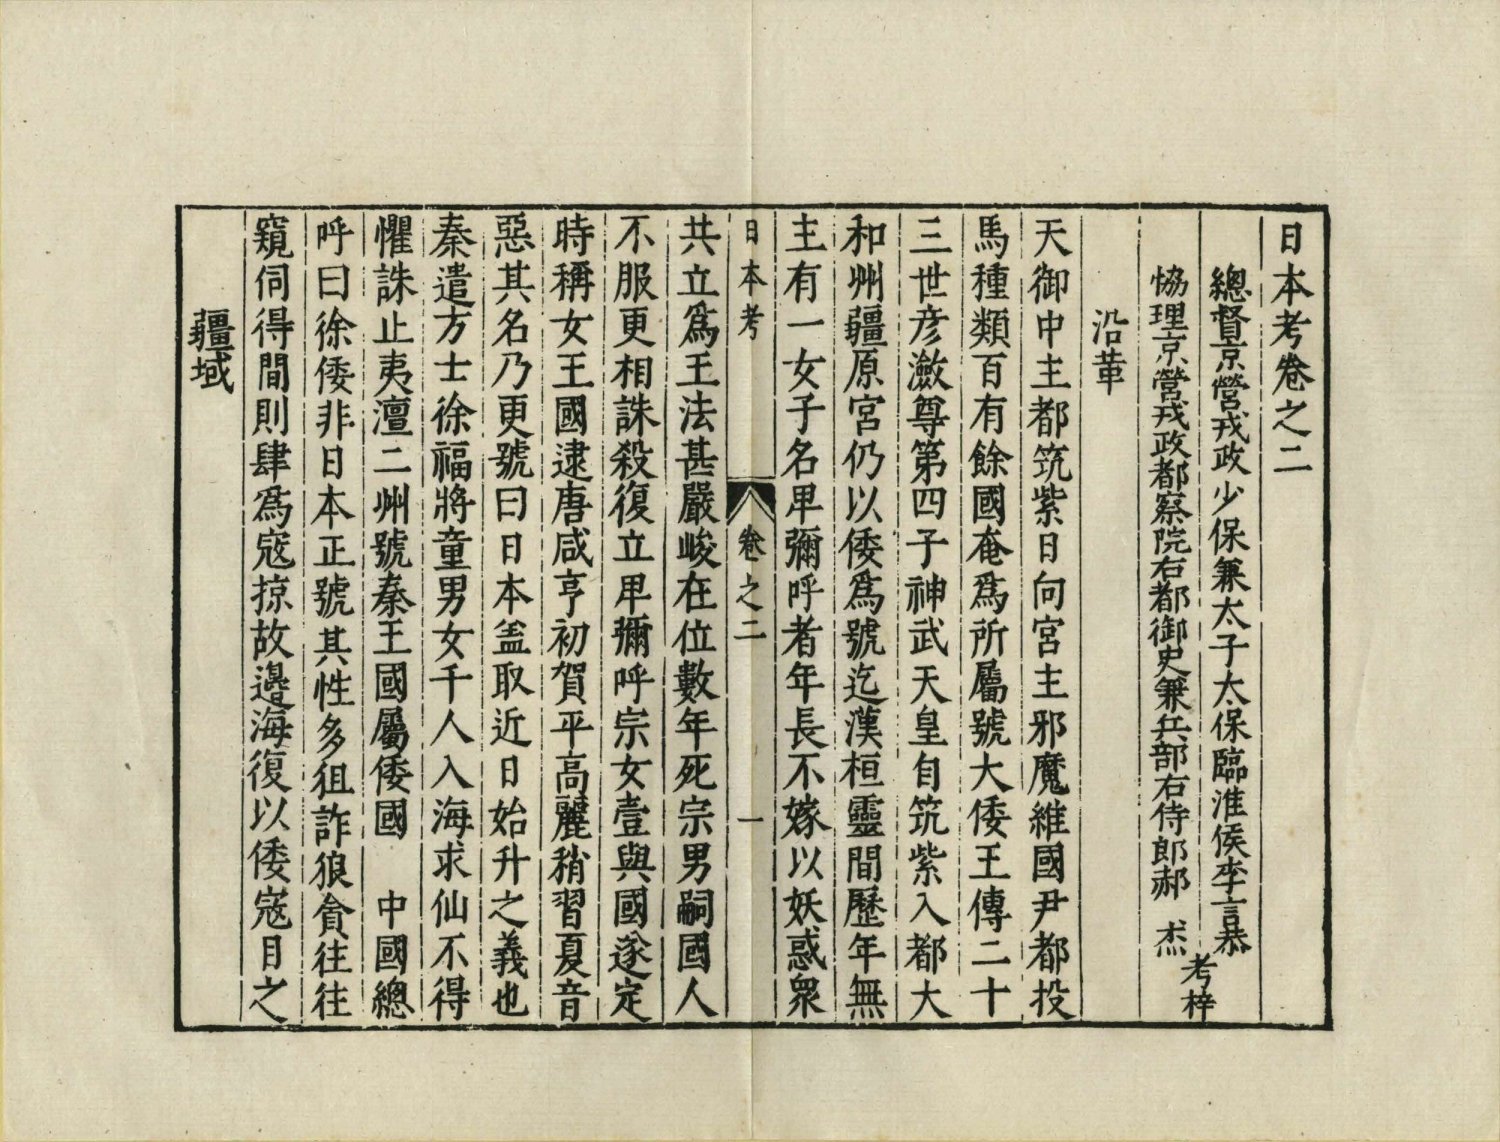 日本考卷之二
總督京營戎政少保兼太子太保臨淮侯李言恭
協理京營戎政都察院右都御史兼兵部右侍郎郝 杰
考梓
沿革
天御中主都筑紫日向宮主邪魔維國尹都投
馬種類百有餘國奄爲所屬號大倭王傳二十
三世彥瀲尊第四子神武天皇自筑紫入都大
和州疆原宮仍以倭爲號迄漢桓靈間歷年無
主有一女子名卑彌呼者年長不嫁以妖惑眾
日本考 卷之二 一
共立爲王法甚嚴峻在位數年死宗男嗣國人
不服更相誅殺復立卑彌呼宗女壹與國遂定
時稱女王國逮唐咸亨初賀平高麗稍習夏音
惡其名乃更號曰日本盖取近日始升之義也
秦遣方士徐福將童男女千人入海求仙不得
懼誅止夷澶二州號秦王國屬倭國 中國總
呼曰徐倭非日本正號其性多狙詐狼貪往往
窺伺得間則肆爲寇掠故邊海復以倭寇目之
疆域